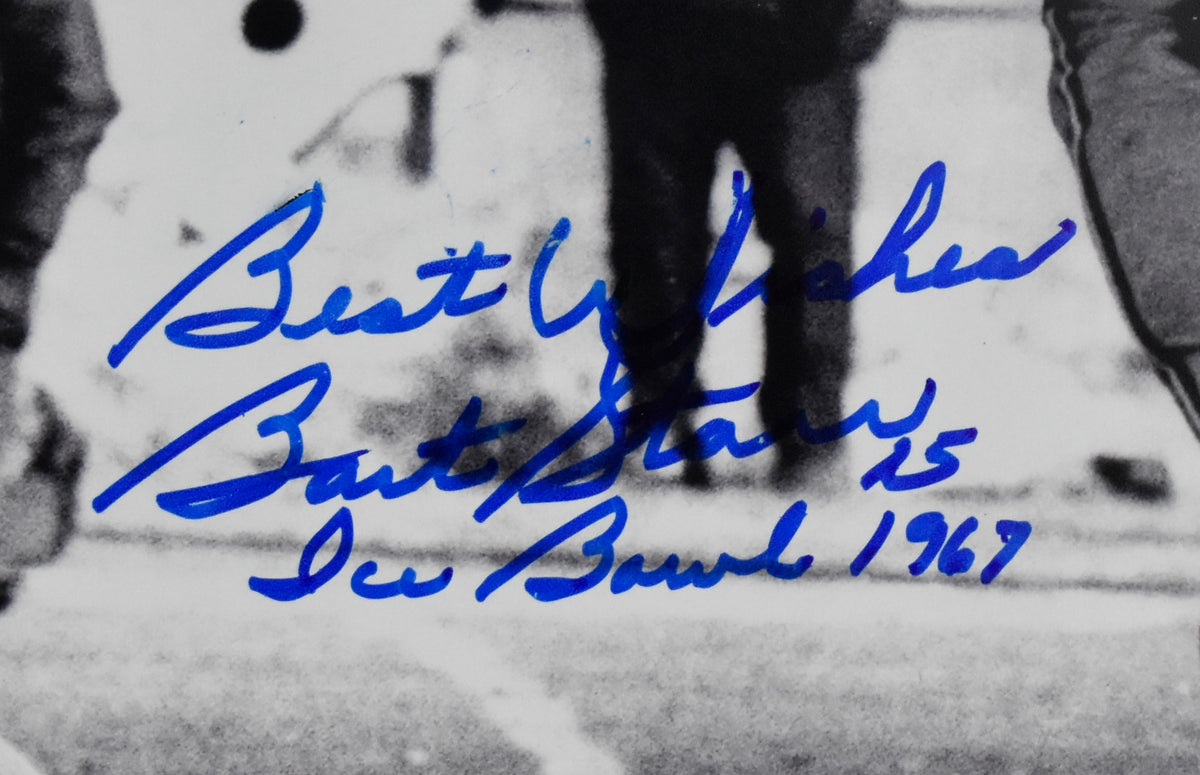 Best Wishes
Bart Starr 15
Ice Bowl 1967